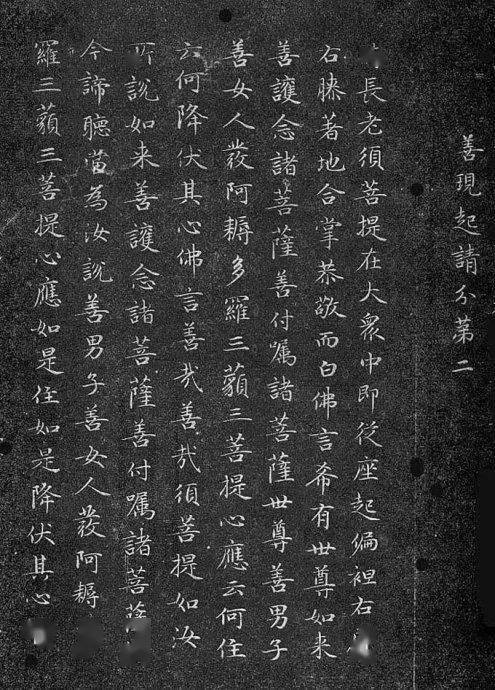 善現起請分第二
長老須菩提在大衆中即從座起偏袒右
右膝著地合掌恭敬而白佛言希有世尊如来
善護念諸菩薩善付囑諸菩薩世尊善男子
善女人發阿耨多羅三藐三菩提心應云何住
云何降伏其心佛言善哉善哉須菩提如汝
所說如来善護念諸菩薩善付囑諸菩薩
今諦聽當為汝說善男子善女人發阿耨
羅三藐三菩提心應如是住如是降伏其心